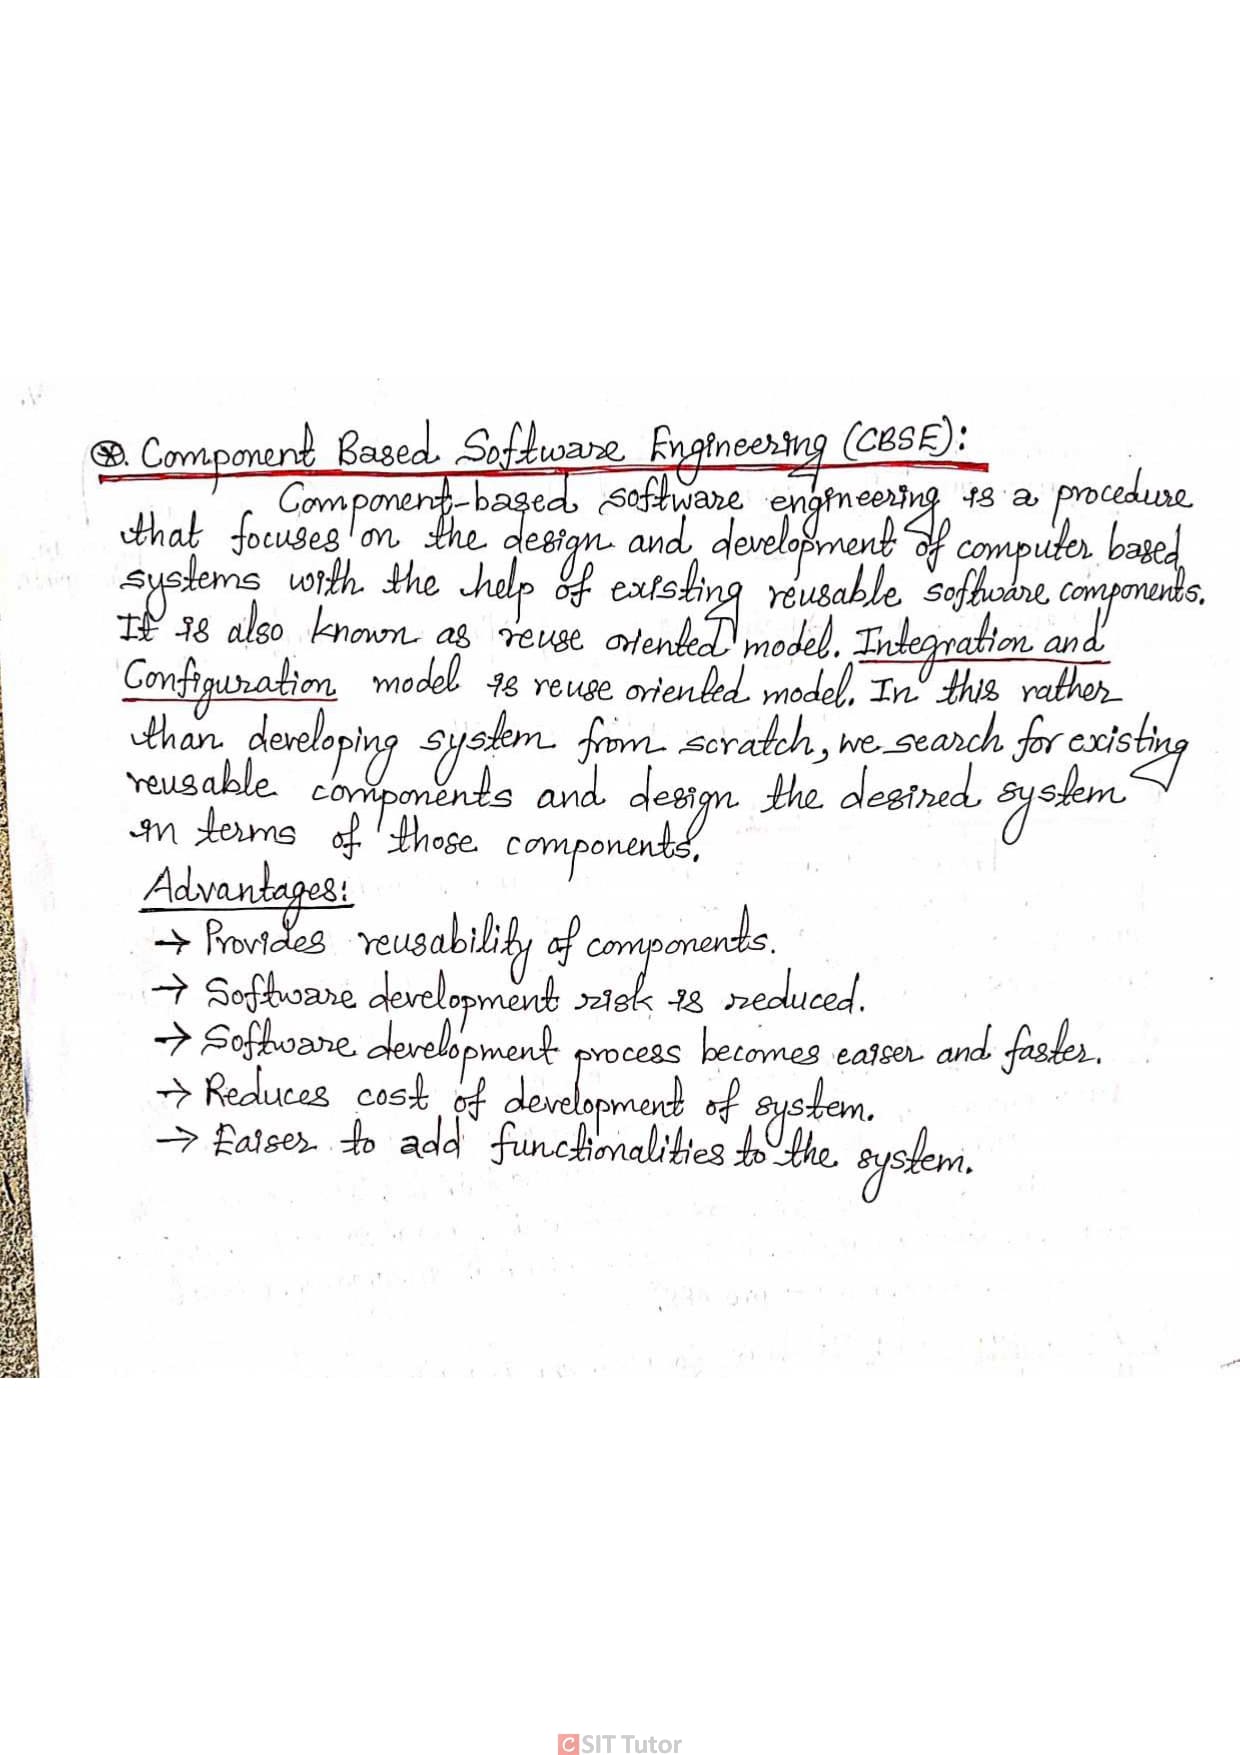 ⊛. Component Based Software Engineering (CBSE):
Component-based software engineering is a procedure
that focuses on the design and development of computer based
systems with the help of existing reusable software components.
It is also known as reuse oriented model. Integration and
Configuration model is reuse oriented model. In this rather
than developing system from scratch, we search for existing
reusable components and design the desired system
in terms of those components.
Advantages:
→ Provides reusability of components.
→ Software development risk is reduced.
→ Software development process becomes eaiser and faster.
→ Reduces cost of development of system.
→ Eaiser to add functionalities to the system.
CSIT Tutor